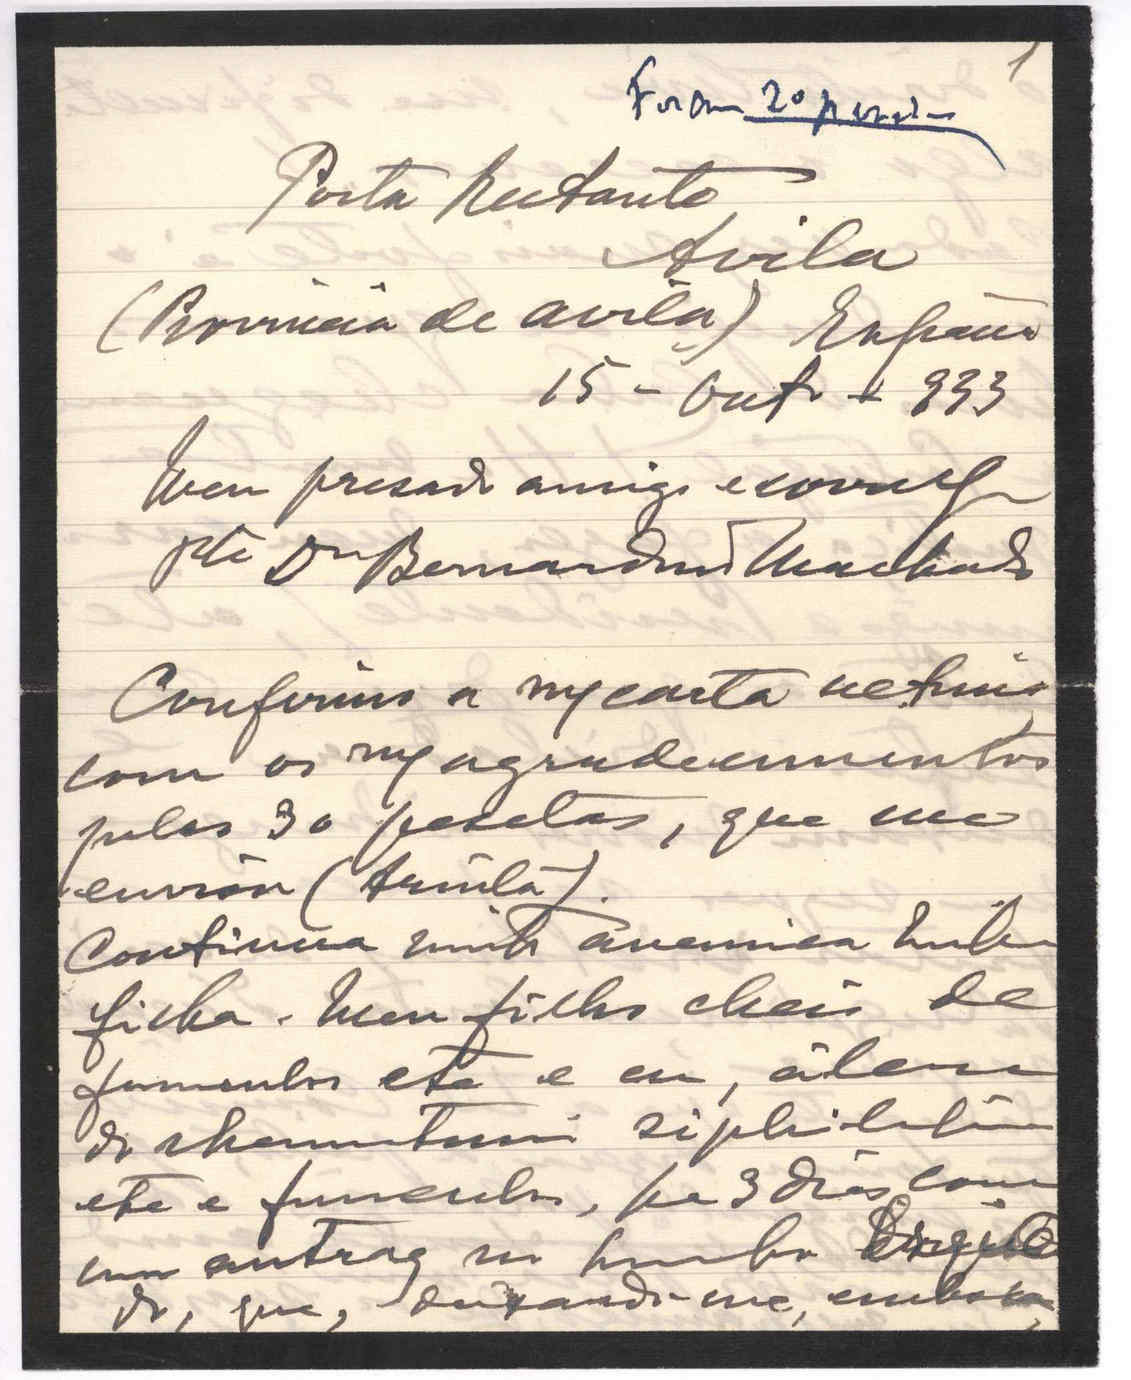 1
Foram 20 pesetas
Posta Restante
Avila
(Provincia de avila) España
15 - Outº - 933
Meu presado amigo e correlg
Dr Bernardino Machado
Confirmo a mª carta ultima
com os mª agradecimentos
pelas 30 pesetas, que me
enviou (Avila).
Continua muitº anemica minha
filha. Meu filho cheio de
furunculos etc e eu, álem
do rheumatismo siphilitico
etc e furunculos, ha 3 dias com
um antraz no hombro Esquer
do, que, deixando-me, embora,